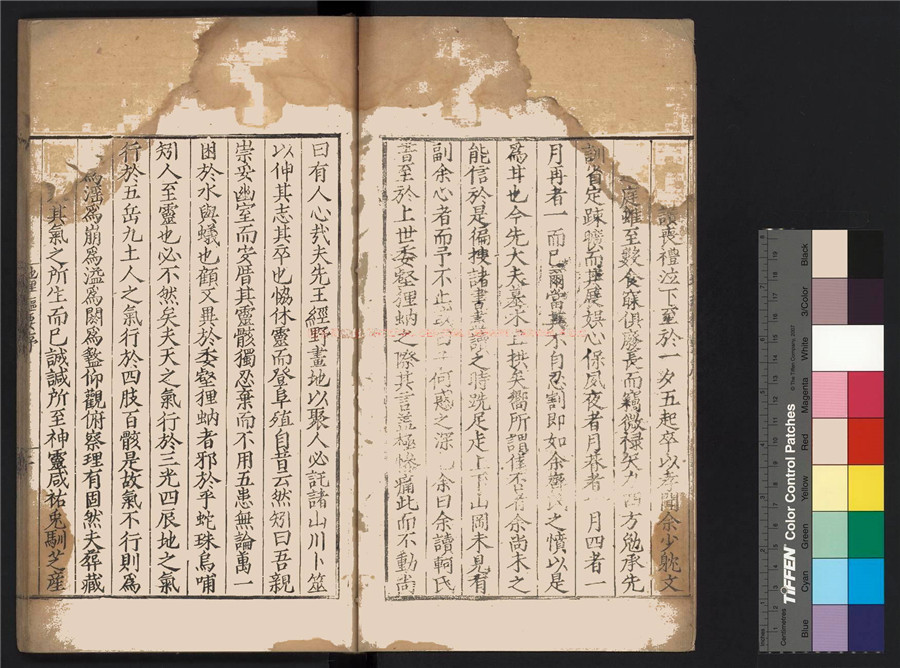 讀喪禮泣下至於一夕五起卒以孝聞余少躭文
庭雖至艱食寐俱廢長而竊微祿矢 四方勉承先
訓省定踈曠而 庭娯心保夙夜者月 者 月四者一
月再者一而已 當 不自忍割即如余 氏之憒以是
爲耳也今先大夫墓木上拱矣嚮所謂僅 者余尚未之
能信於是徧搜諸書 讀之時跣足走上下山岡未見有
副余心者而予不止或曰子何慼之深 余曰余讀軻氏
書至於上世委壑狸蚋之際其言蓋極慘痛此而不動尚
曰有人心㢤夫先王經野畫地以聚人必託諸山川卜筮
以伸其志其卒也恊休靈而登阜殖自昔云然矧曰吾親
崇安幽室而安厝其靈骸獨忍棄而不用五患無論萬一
困於水與蟻也顧又異於委壑狸蚋者邪於乎蛇珠烏哺
矧人至靈也必不然矣夫天之氣行於三光四辰地之氣
行於五岳九土人之氣行於四肢百骸是故氣不行則爲
爲滛爲崩爲溢爲閼爲盭仰觀俯察理有固然夫葬藏
其氣之所生而已誠諴所至神靈咸祐兎馴芝産
地理 序